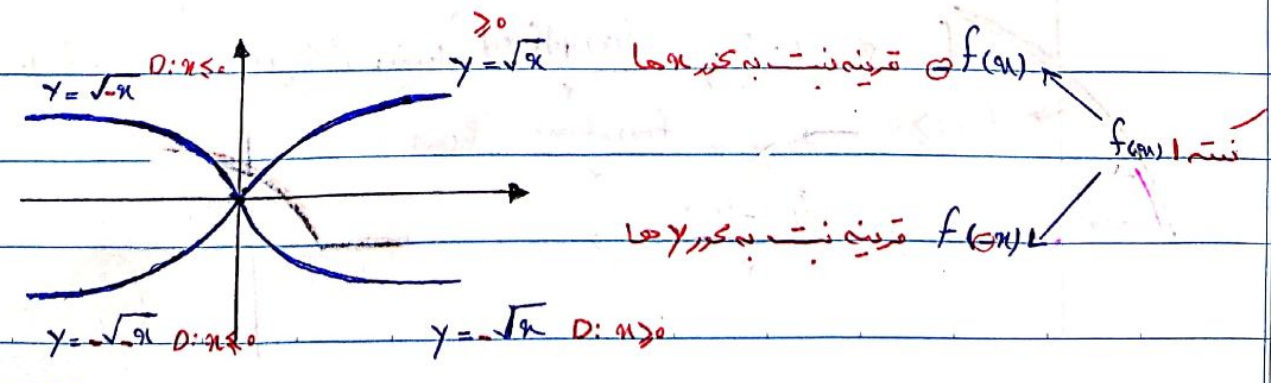 ≥0
y = √x
D: x ≤ 0
y = √-x
⊖f(x) قرینه نسبت به محور xها
f(x)
f(⊖x) قرینه نسبت به محور yها
y = -√-x D: x ≤ 0
y = -√x D: x ≥ 0